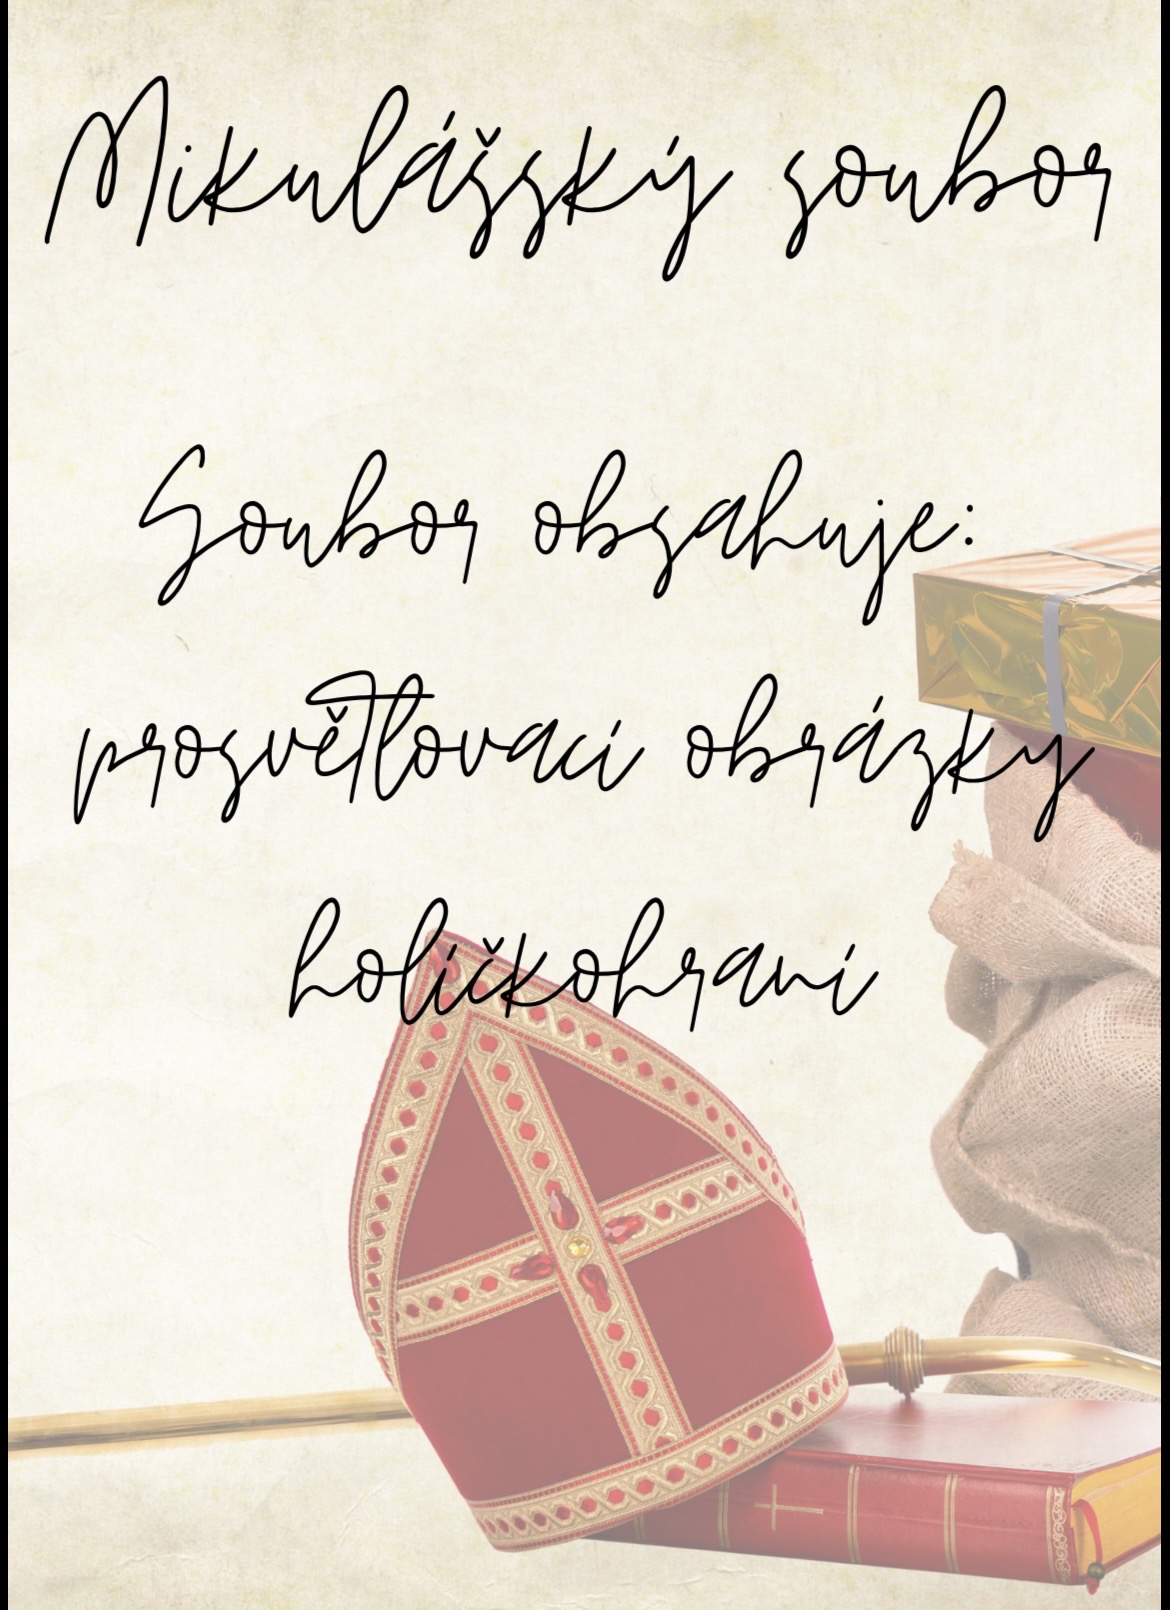 Mikulášský soubor
Soubor obsahuje:
prosvětlovací obrázky
holičkohraní